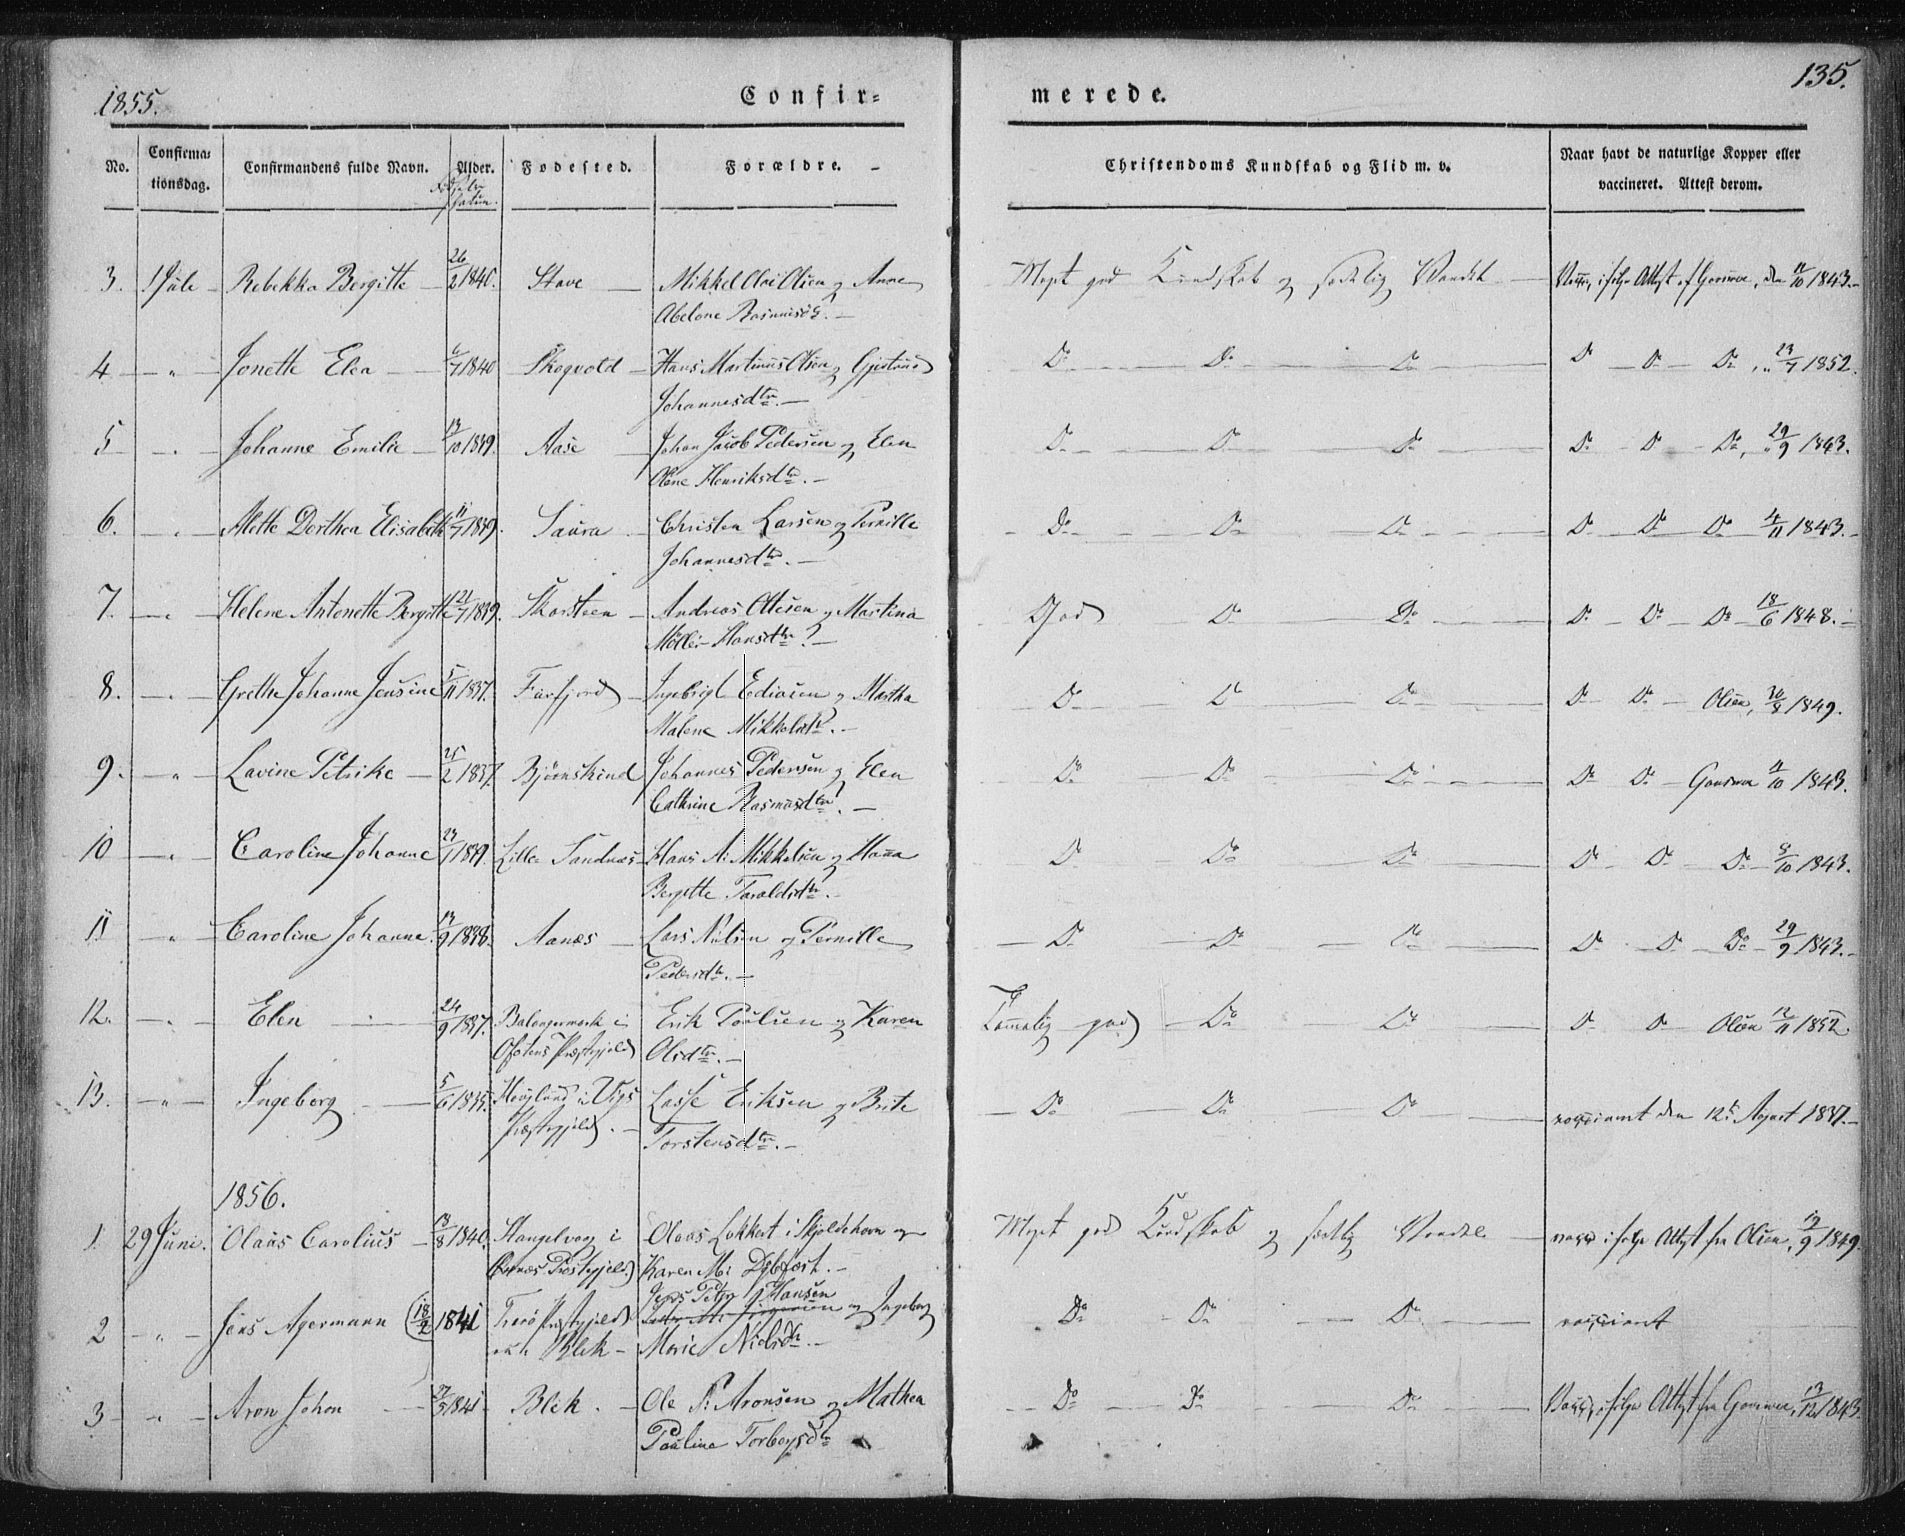 1855.
Confir=
merede.
135.
No.
Confirma=
tionsdag.
Confirmandens fulde Navn.
Alder.
Fødested.
Forældre.
Christendoms Kundskab og Flid m. v.
Naar havt de naturlige Kopper eller
vaccineret. Attest derom.
3. 1 Jule Rebekka Bergitte 26/2 1840. Stave Mikkel Olsen og Anne Meget god Kundskab og sædelig Vandel Vacc. ifølge Attest af Gommee, den 11/10 1843.
Abelone
4 " Jonette Elea 1840 Skogvold Hans Martinus Olsen og Gjertrud Do Do Do Do Do Do, " 23/7 1852.
Johannesdtr.
5 " Johanne Emilie 13/10 1839. Aase Johan Jacob Pedersen og Elen Do Do Do Do Do Do, " 29/9 1843.
Olene Henriksdtr.
6. " Mette Dorthea Elisabeth 11/7 1839. Saura Christen Larsen og Pernille Do Do Do Do Do Do 4/11 1843.
Johannesdtr.
7. " Helene Antonette Bergitte 21/7 1839. Skorsteen Andreas Ottesen og Martina God Do Do Do Do Do 18/6 1848.
Møller Hansdtr.
8. " Grethe Johanne Jensine 5/11 1837. Farfjord Ingebrigt Ediasen og Martha Do Do Do Do Do Olsen, 30/8 1849.
Malene Mikkelsdtr.
9. " Lavine Petrike 25/2 1837. Bjørnskind Johannes Pedersen og Elen Do Do Do Do Do 11/10 1843.
Cathrine Rasmusdtr.
10 " Caroline Johanne 1839. Lille Sandnæs Hans A. Mikkelsen og Hanna Do Do Do Do Do Do 8/10 1843.
Bergitte Taraldsdtr.
11 " Caroline Johanne. 13/9 1838. Aanæs Lars Nilsen og Pernille Do Do Do Do Do Do 29/9 1843.
Pedersdtr.
12. " Elen 24/9 1837. i Erik Poulsen og Karen Temmelig god Do Do Do Do Olsen 12/11 1852.
Ofotens Præstegjeld Olsdtr.
13. " Ingeborg 5/6 1835. i Lasse Eriksen og Brite Do Do Do vaccineret den 12te August 1837.
Præstegjeld. Torstensdtr.
1856.
1. 29 Juni. Olaus Carolius 13/8 1840. i Olaus Lokkert i Skjoldehavn og Meget god Kundskab og sædelig Vandel vacc. ifølge Attest fra Olsen, 19/9 1849.
Præstegjeld. Karen M.
Jens Peter Hansen
2 " Jens Agermann 18/2 1841 Præstegjeld og Ingeborg Do Do Do vaccineret
Blek Marie Nielsdtr.
3 " Aron Johan 1841 Blek. Ole P. Aronsen og Mathea Do Do Do Vacc. ifølge Attest fra Gommee, 13/12 1843.
Pauline Torbergsdtr